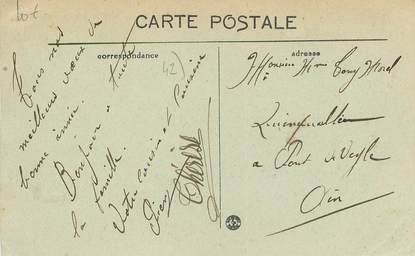 CARTE POSTALE
correspondance
adresse
42
Tous nos
meilleurs vœux de
bonne année.
Bonjour a toute
la famille.
Votre cousin et cousine
Thérèse
Monsieur Mme Tony Morel
Quincaillier
a Pont de Veyle
Ain